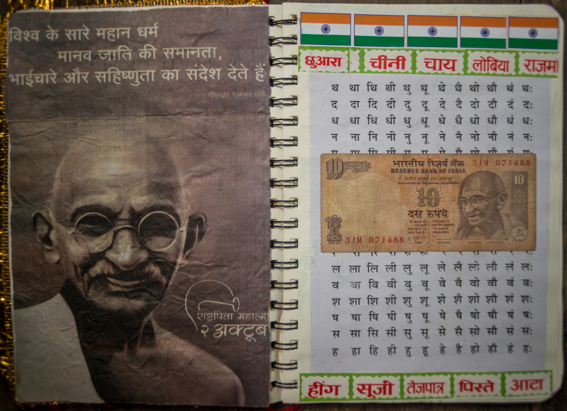 विश्व के सारे महान धर्म
मानव जाति की समानता,
भाईचारे और सहिष्णुता का संदेश देते हैं
राष्ट्रपिता महात्मा
२ अक्टूब
छुआरा चीनी चाय लोबिया राजमा
थ था थि थी थु थू थे थै थो थौ थं थः
द दा दि दी दु दू दे दै दो दौ दं दः
ध धा धि धी धु धू धे धै धो धौ धं धः
न ना नि नी नु नू ने नै नो नौ नं नः
10 भारतीय रिज़र्व बैंक 3JM 071488
RESERVE BANK OF INDIA 10
10
दस रुपये
3JM 071488
ल ला लि ली लु लू ले लै लो लौ लं लः
व वा वि वी वु वू वे वै वो वौ वं वः
श शा शि शी शु शू शे शै शो शौ शं शः
ष षा षि षी षु षू षे षै षो षौ षं षः
स सा सि सी सु सू से सै सो सौ सं सः
ह हा हि ही हु हू हे है हो हौ हं हः
हींग सूजी तेजपात्र पिस्ते आटा